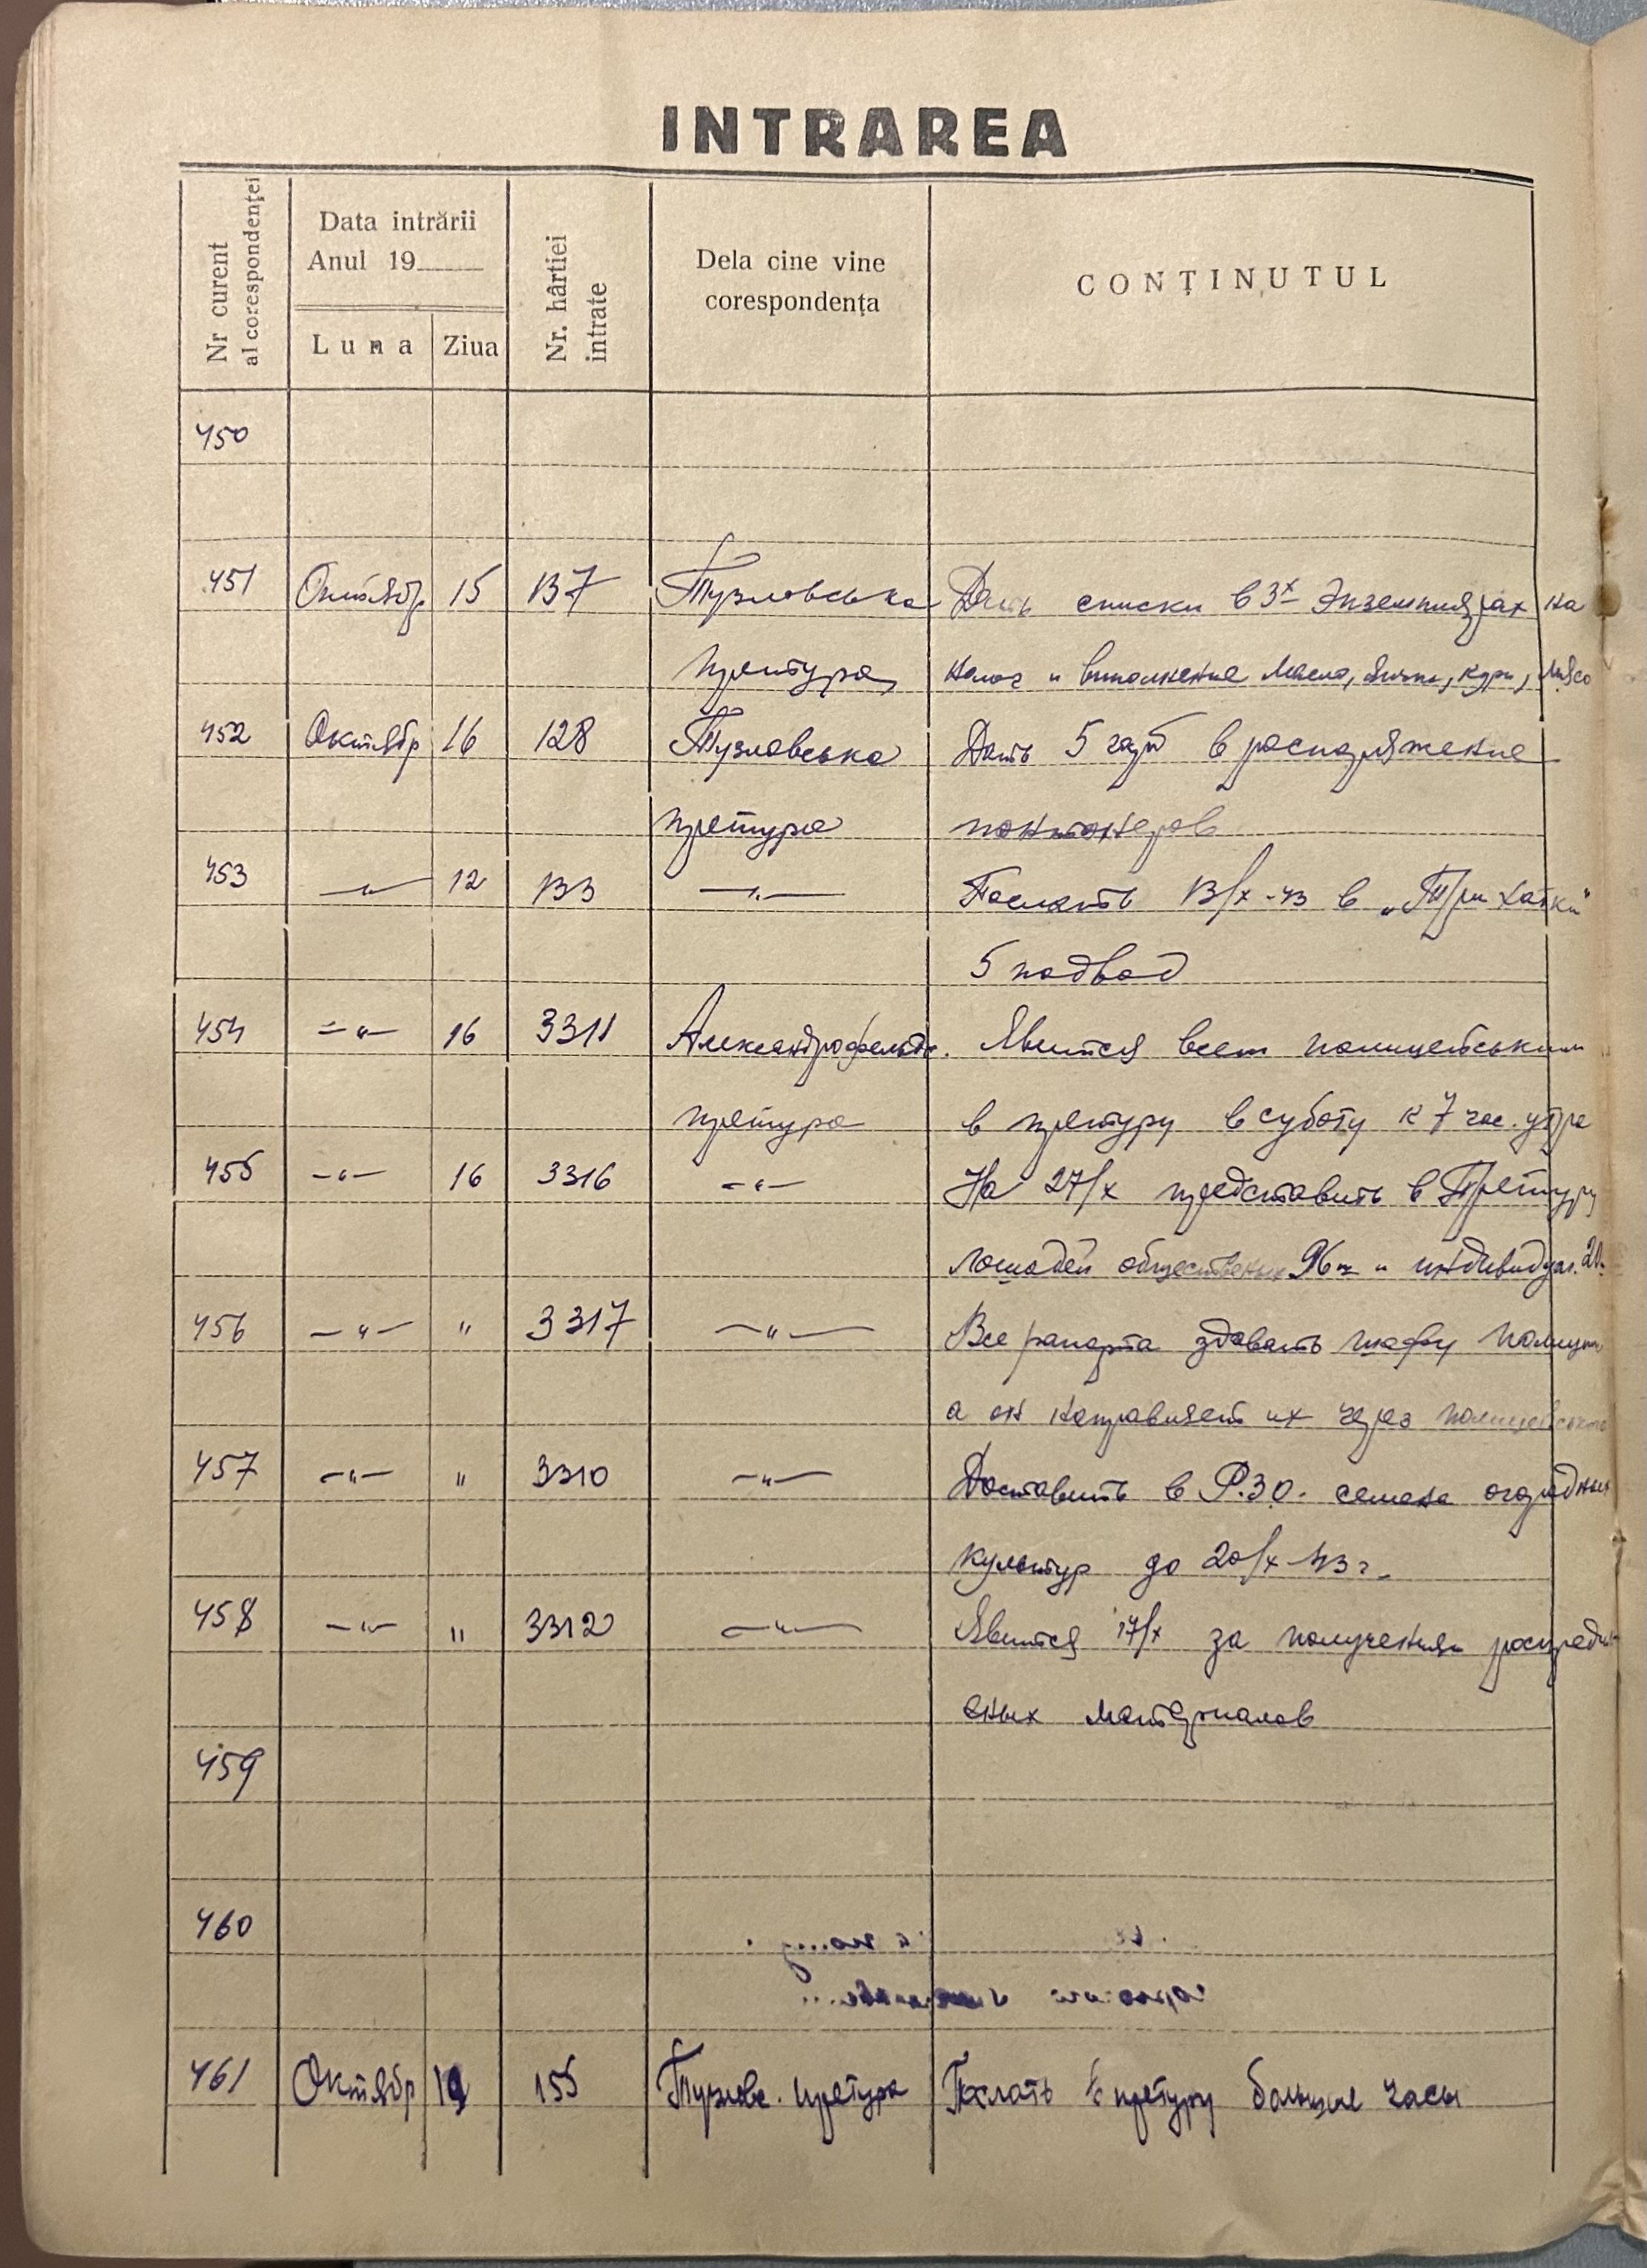 INTRAREA
Nr curent al corespondenței
Data intrării
Anul 19
Luna
Ziua
Nr. hârtiei intrate
Dela cine vine corespondența
CONȚINUTUL
450
451 Октябр 15 137 Тузловська Дать списки в 3х Экземплярах на
претура налог и выполнение Масла, яичек, куры, мясо
452 Октябр 16 128 Тузловська Дать 5 гарб в распоряжение
претура понтонеров
453 —"— 12 133 —"— Послать 13/х-43 в „Три хатки"
5 подвод
454 —"— 16 3311 Александрофельдс. Явится всем полицейським
претура в претуру в суботу к 7 час. утра
455 —"— 16 3316 —"— На 27/х представить в Претуру
лошадей общественых 96 и индивидуал. 20
456 —"— " 3317 —"— Все рапорта здавать шефу
а он направляет их через
457 —"— " 3310 —"— Доставить в Р.З.О. семена огородных
культур до 20/х-43 г.
458 —"— " 3312 —"— Явится 17/х за получениям
еных материалов
459
460
461 Октябр 19 155 Тузловс. претура Послать в претуру большие часы